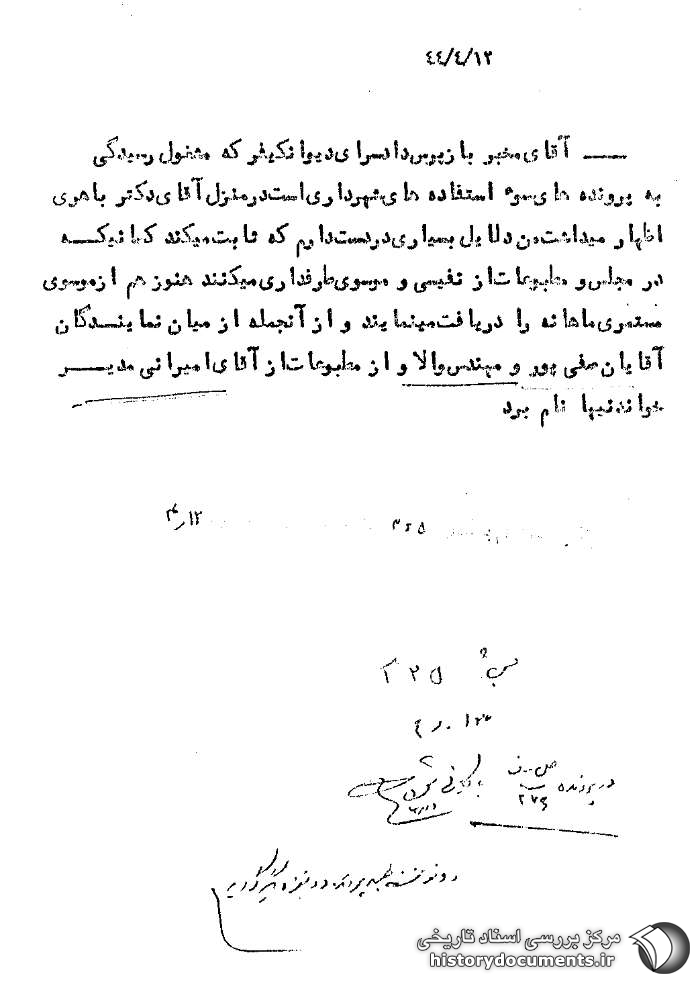 ۴۴/۴/۱۲
ــــ آقای مخبر بازپرس دادسرای دیوانکیفر که مشغول رسیدگی
به پرونده های سوء استفاده های شهرداری است در منزل آقای دکتر باهری
اظهار میداشت من دلایل بسیاری در دست دارم که ثابت میکند کسانیکه
در مجلس و مطبوعات از نفیسی و موسوی طرفداری میکنند هنوز هم از موسوی
مستمری ماهانه را دریافت مینمایند و از آنجمله از میان نمایندگان
آقایان صفی پور و مهندس والا و از مطبوعات از آقای امیرانی مدیر
خواندنیها نام برد
۳۲۵ ۱۲ر۴
۳۲۵
در پرونده
مرکز بررسی اسناد تاریخی
historydocuments.ir